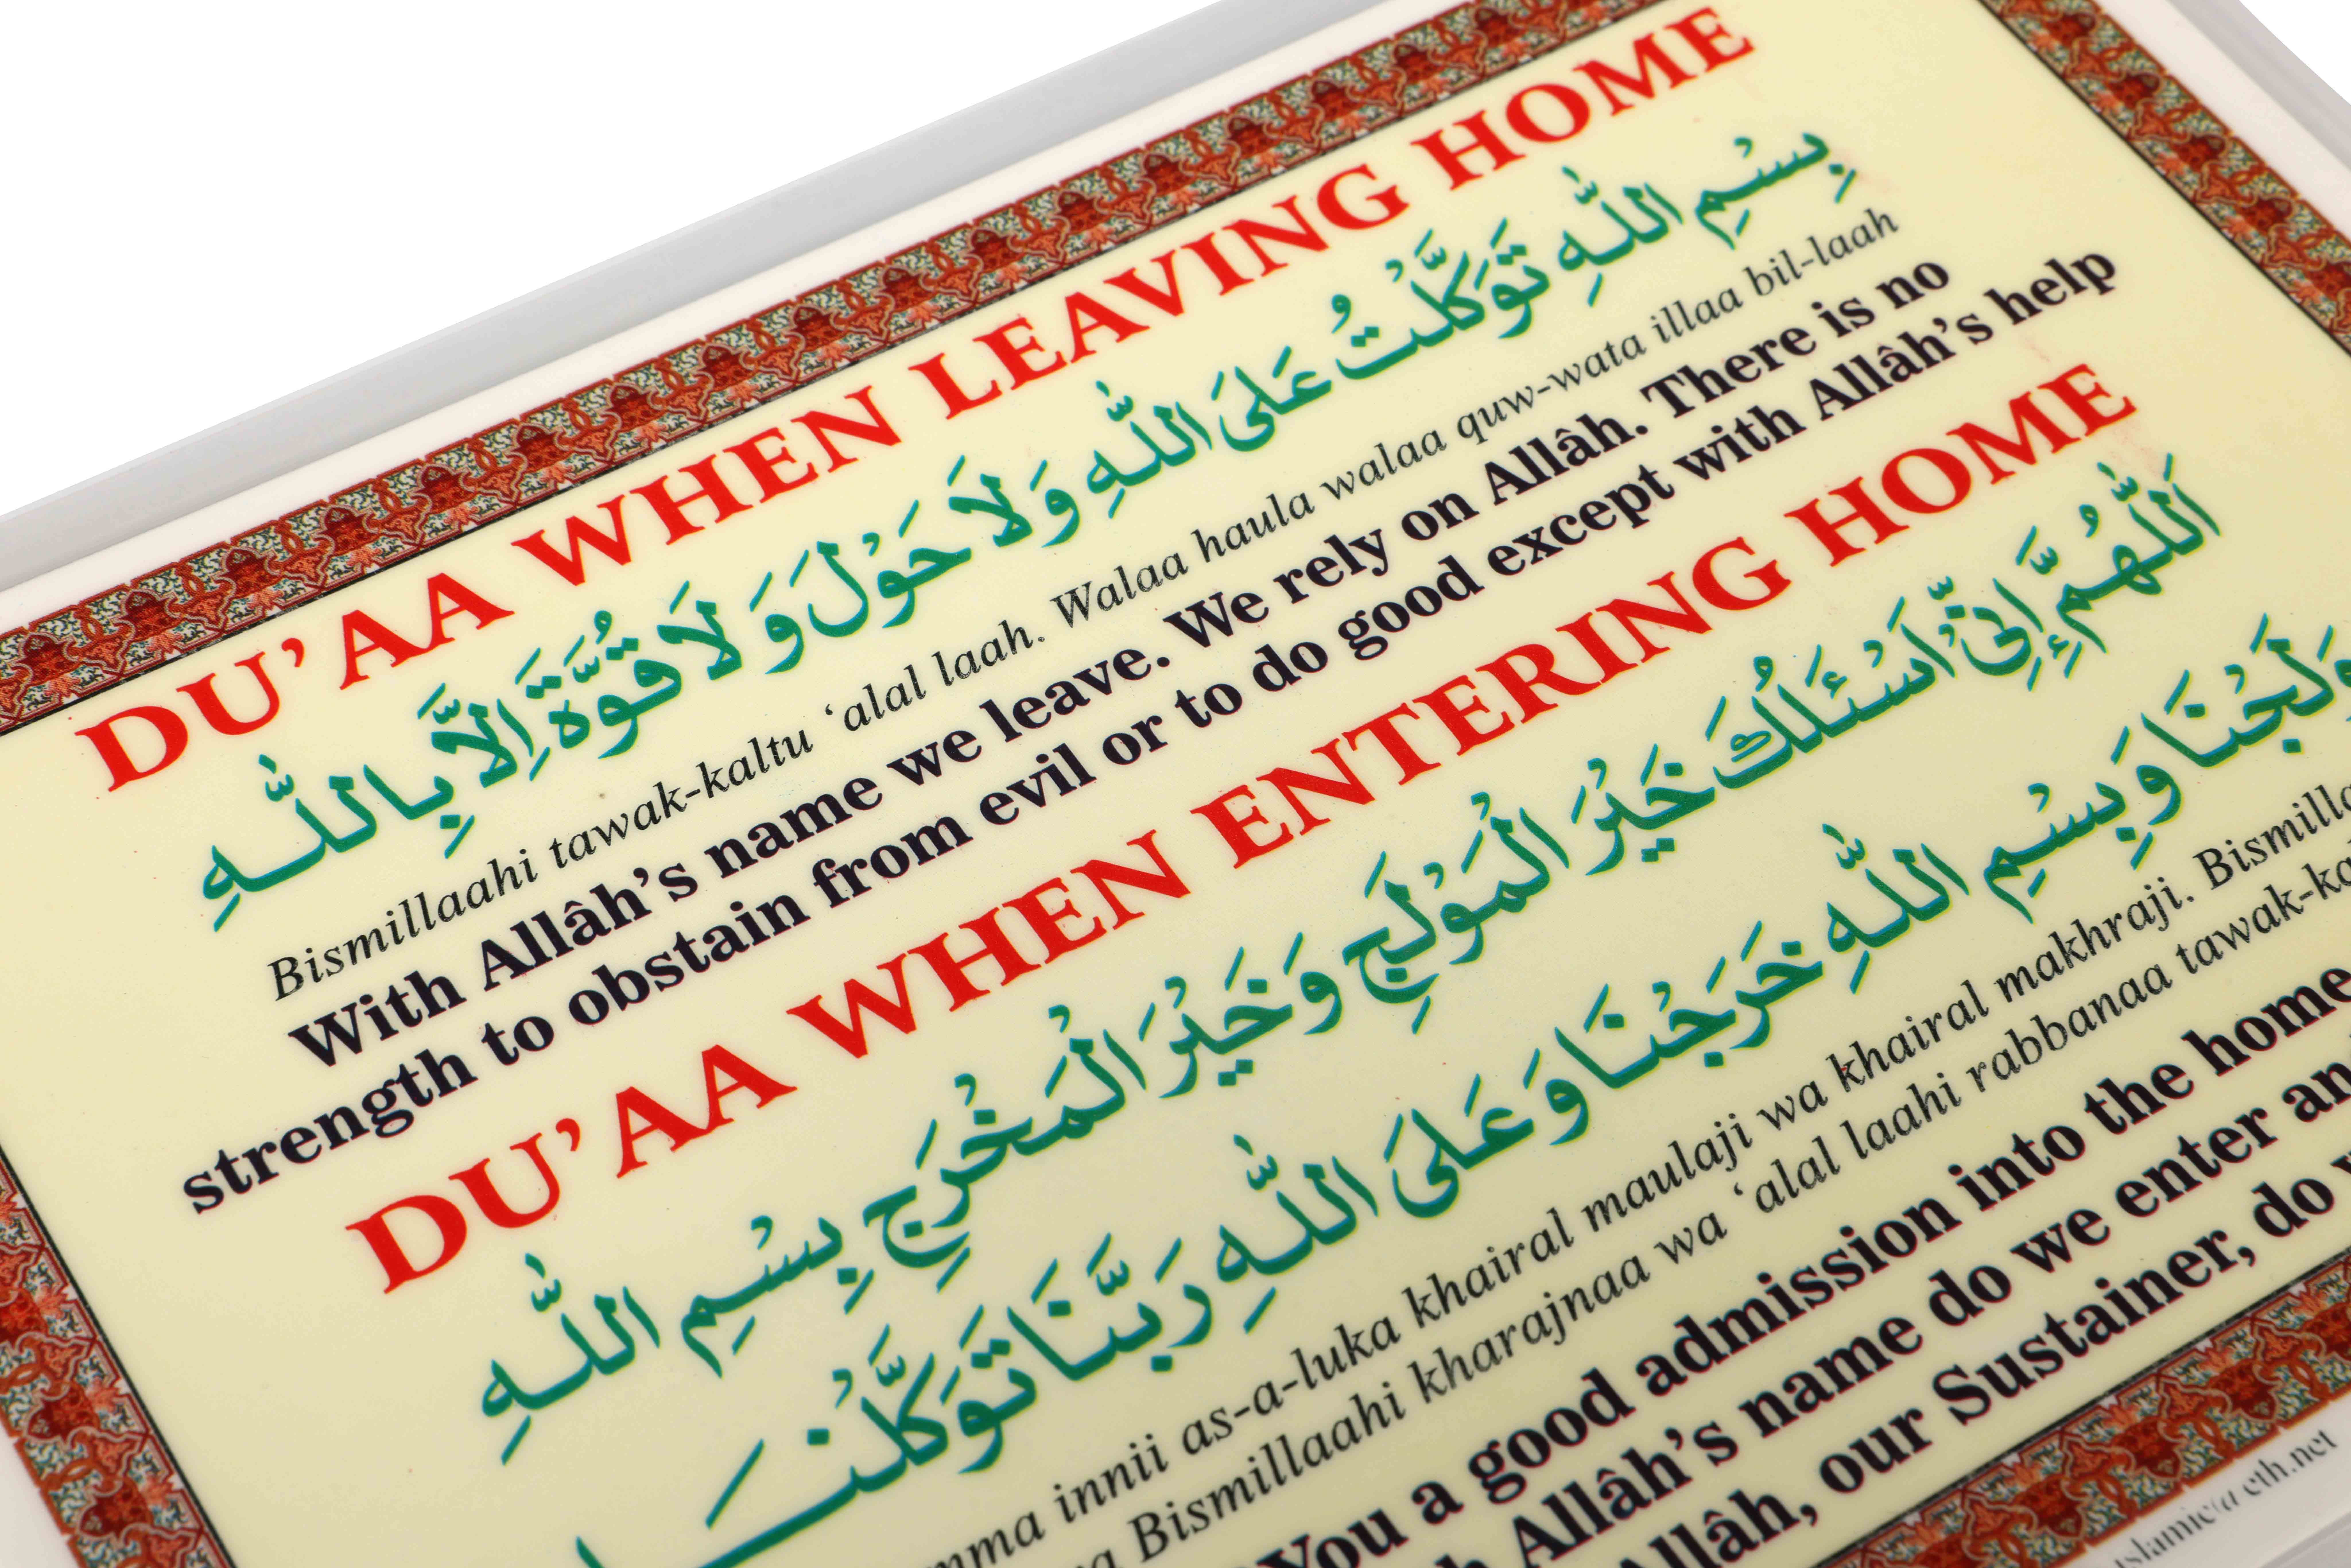 DU’AA WHEN LEAVING HOME
بِسْمِ اللّٰهِ تَوَكَّلْتُ عَلَى اللّٰهِ وَلَا حَوْلَ وَلَا قُوَّةَ اِلَّا بِاللّٰهِ
Bismillaahi tawak-kaltu ‘alal laah. Walaa haula walaa quw-wata illaa bil-laah
With Allâh’s name we leave. We rely on Allâh. There is no
strength to obstain from evil or to do good except with Allâh’s help
DU’AA WHEN ENTERING HOME
اَللّٰهُمَّ اِنِّىْ اَسْئَلُكَ خَيْرَ الْمَوْلَجِ وَخَيْرَ الْمَخْرَجِ بِسْمِ اللّٰهِ
وَلَجْنَا وَبِسْمِ اللّٰهِ خَرَجْنَا وَعَلَى اللّٰهِ رَبَّنَا تَوَكَّلْنَا
innii as-a-luka khairal maulaji wa khairal makhraji.
Bismillaahi kharajnaa wa ‘alal laahi rabbanaa
You a good admission into the home
Allâh’s name do we enter
Allâh, our Sustainer, do